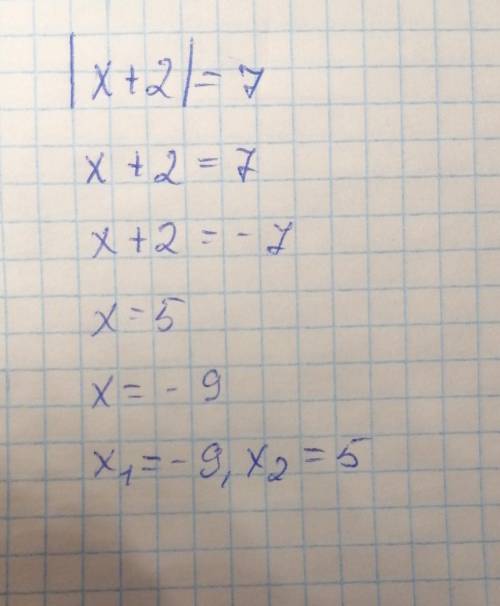 |x+2|=7
x+2=7
x+2=-7
x=5
x=-9
x₁=-9, x₂=5